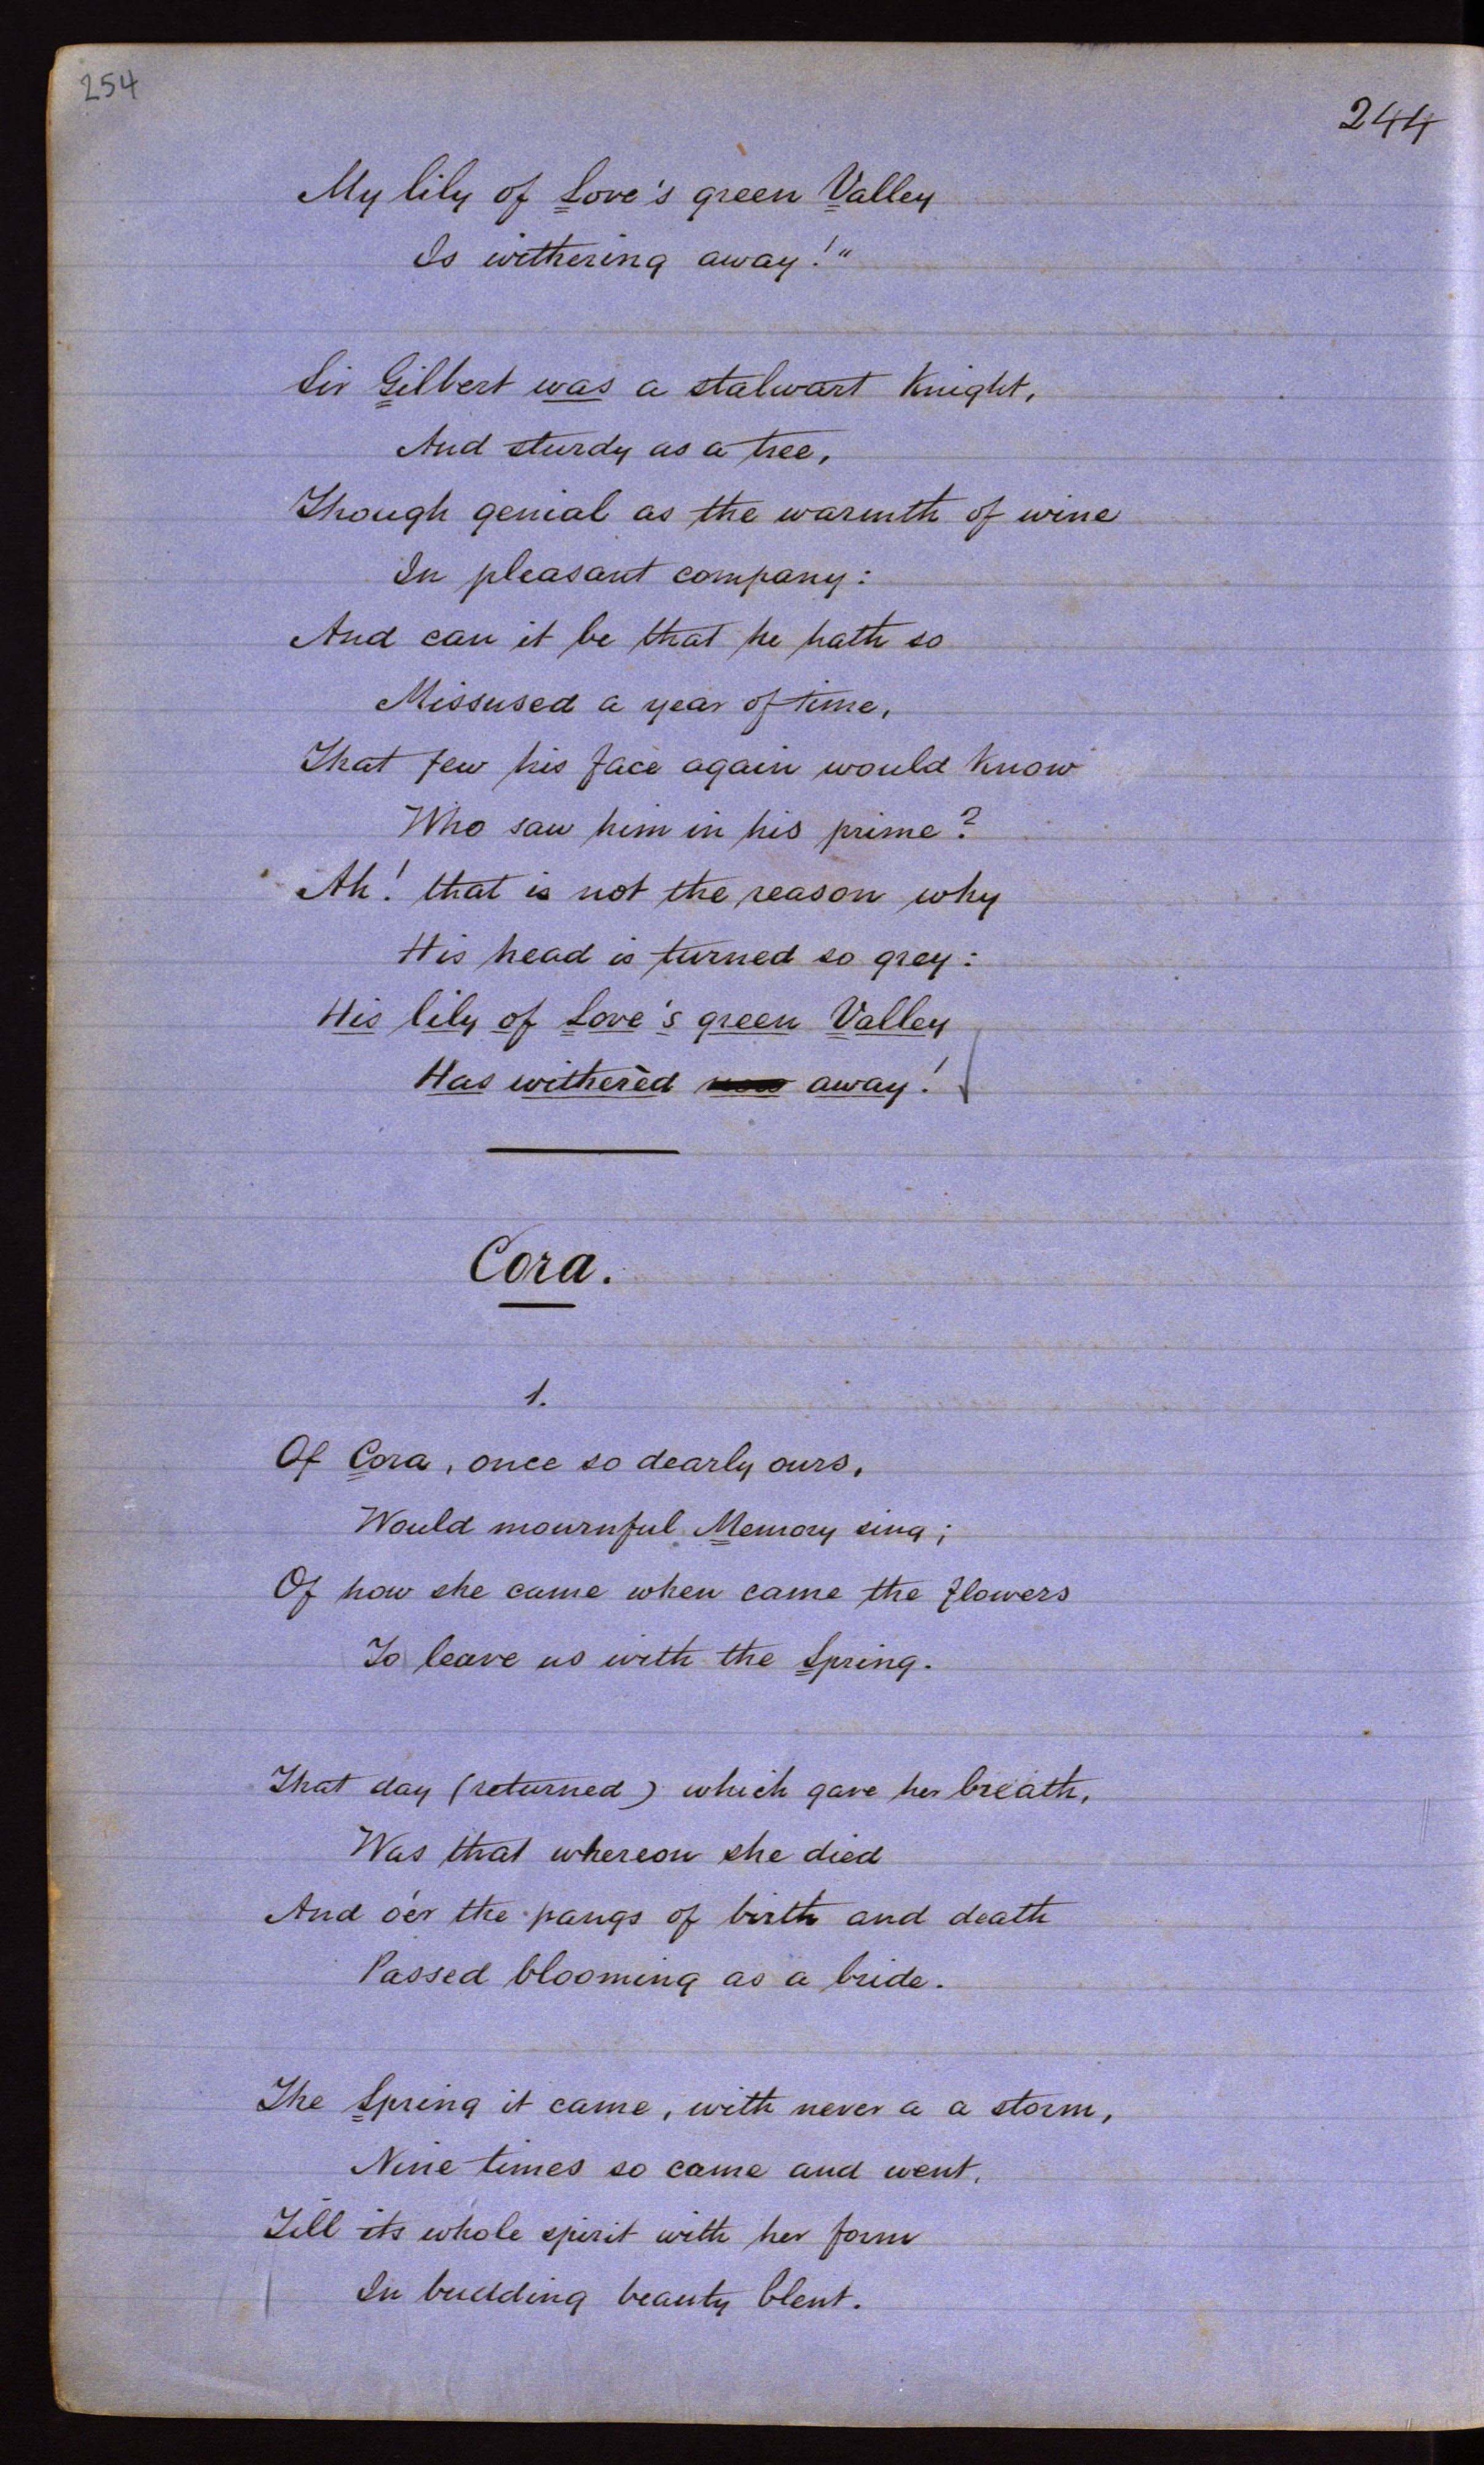 254
244
My lily of Love's green Valley
Is withering away!"
Sir Gilbert was a stalwart Knight,
And sturdy as a tree,
Though genial as the warmth of wine
In pleasant company:
And can it be that he hath so
Missused a year of time,
That few his face again would know
Who saw him in his prime?
Ah! that is not the reason why
His head is turned so grey:
His lily of Love's green Valley
Has witherèd away!
Cora.
1.
Of Cora, once so dearly ours,
Would mournful Memory sing;
Of how she came when came the flowers
To leave us with the Spring.
That day (returned) which gave her breath,
Was that whereon she died
And o'er the pangs of birth and death
Passed blooming as a bride.
The Spring it came, with never a a storm,
Nine times so came and went,
Till its whole spirit with her form
In budding beauty blent.